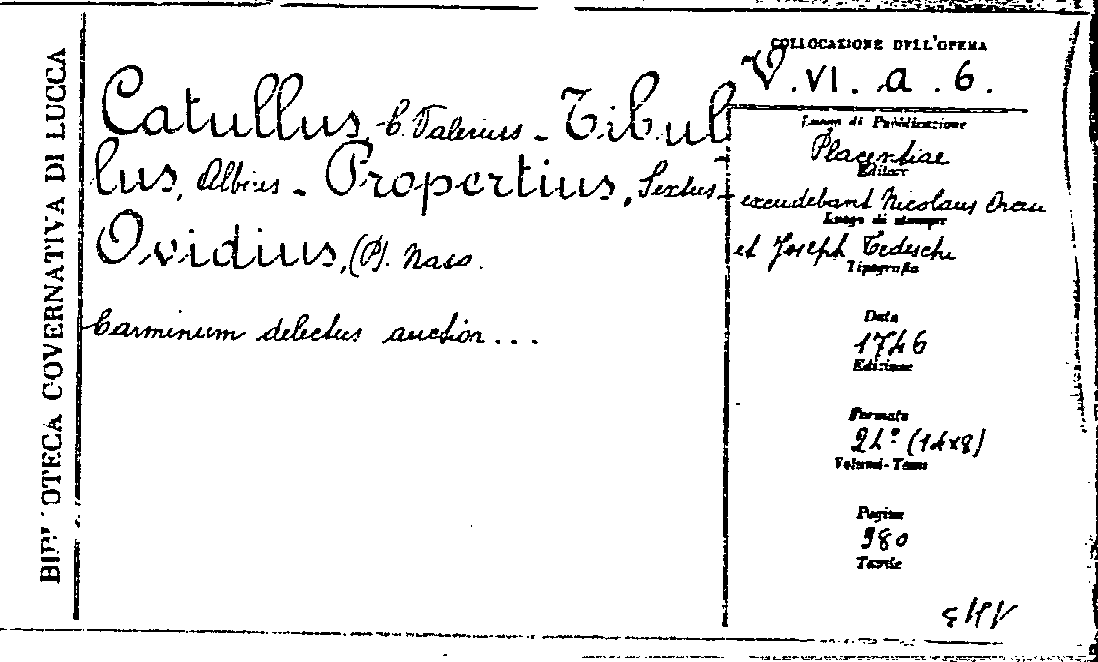 BIBLIOTECA GOVERNATIVA DI LUCCA
Catullus, C. Valerius - Tibul
lus, Albius - Propertius, Sextus -
Ovidius, (P). Naso.
Carminum delectus auctior...
COLLOCAZIONE DELL'OPERA
V. VI. a. 6.
Luogo di Pubblicazione
Placentiae
Editore
excudebant Nicolaus Orcu
Luogo di stampa
et Joseph Tedeschi
Tipografia
Data
1746
Edizione
Formato
24° (14x8)
Volumi-Tomo
Pagine
380
Tavole